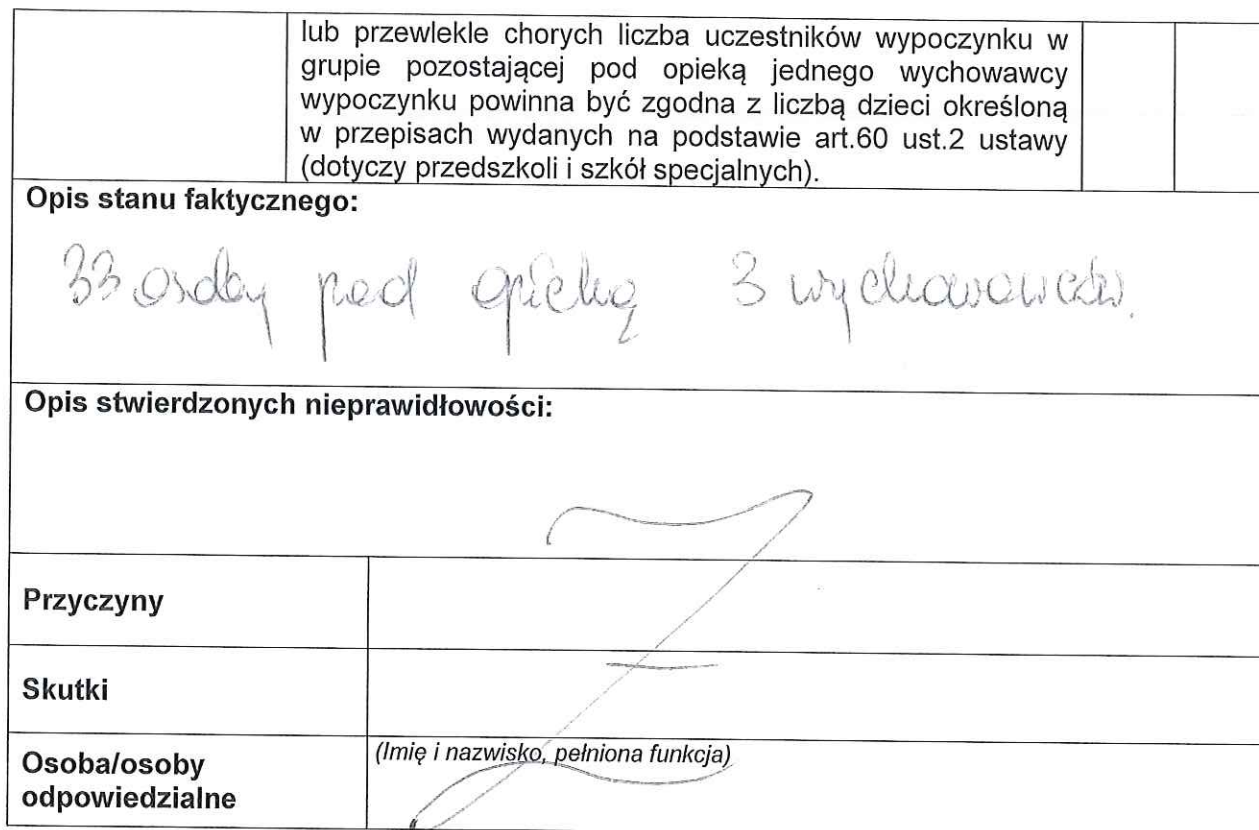 lub przewlekle chorych liczba uczestników wypoczynku w
grupie pozostającej pod opieką jednego wychowawcy
wypoczynku powinna być zgodna z liczbą dzieci określoną
w przepisach wydanych na podstawie art.60 ust.2 ustawy
(dotyczy przedszkoli i szkół specjalnych).
Opis stanu faktycznego:
33 osoby pod opieką 3 wychowawców.
Opis stwierdzonych nieprawidłowości:
Przyczyny
Skutki
Osoba/osoby
odpowiedzialne
(Imię i nazwisko, pełniona funkcja)